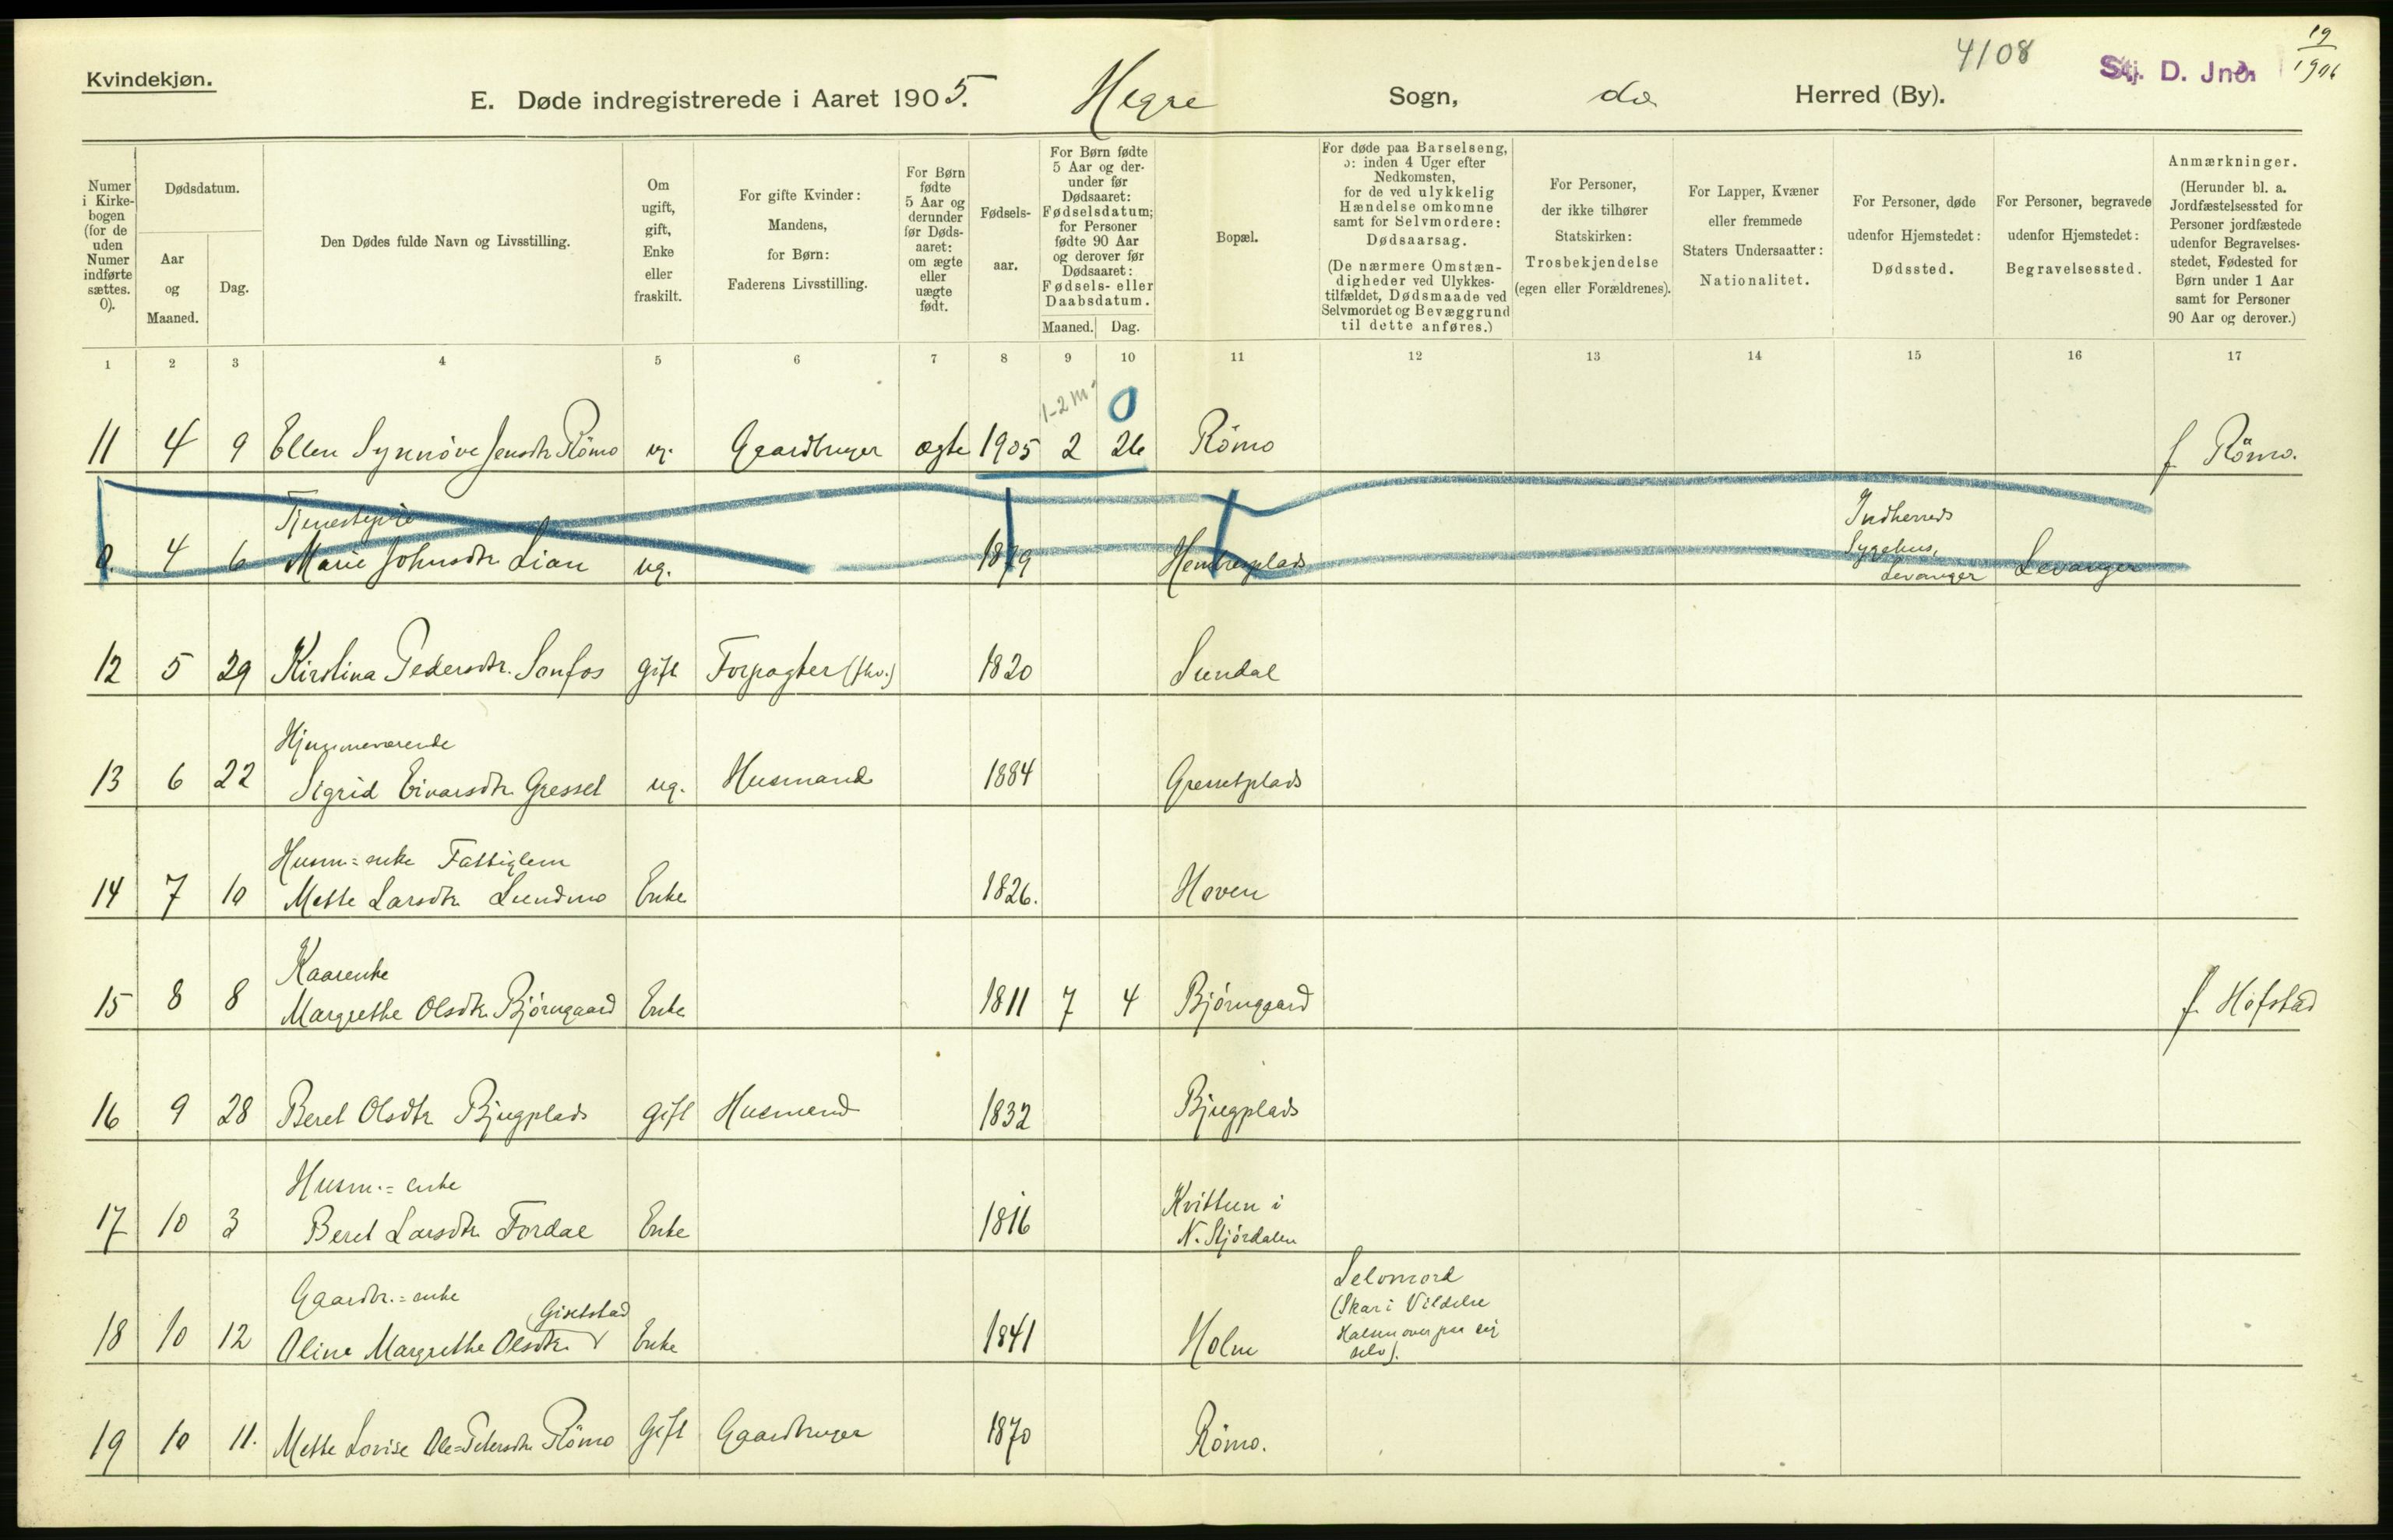 Kvindekjøn.
E. Døde indregistrerede i Aaret 1905. Hegre Sogn, do Herred (By).
4108
Stj. D. Jn
19/1906
Numer i Kirke-bogen (for de uden Numer indførte sættes. 0).
Dødsdatum.
Aar og Maaned.
Dag.
Den Dødes fulde Navn og Livsstilling.
Om ugift, gift, Enke eller fraskilt.
For gifte Kvinder: Mandens, for Børn: Faderens Livsstilling.
For Børn fødte 5 Aar og derunder før Døds-aaret: om ægte eller uægte født.
Fødsels-aar.
For Børn fødte 5 Aar og der-under før Dødsaaret: Fødselsdatum; for Personer fødte 90 Aar og derover før Dødsaaret: Fødsels- eller Daabsdatum.
Maaned. Dag.
Bopæl.
For døde paa Barselseng, ɔ: inden 4 Uger efter Nedkomsten, for de ved ulykkelig Hændelse omkomne samt for Selvmordere: Dødsaarsag. (De nærmere Omstæn-digheder ved Ulykkes-tilfældet, Dødsmaade ved Selvmordet og Bevæggrund til dette anføres.)
For Personer, der ikke tilhører Statskirken: Trosbekjendelse (egen eller Forældrenes).
For Lapper, Kvæner eller fremmede Staters Undersaatter: Nationalitet.
For Personer, døde udenfor Hjemstedet: Dødssted.
For Personer, begravede udenfor Hjemstedet: Begravelsessted.
Anmærkninger. (Herunder bl. a. Jordfæstelsessted for Personer jordfæstede udenfor Begravelses-stedet, Fødested for Børn under 1 Aar samt for Personer 90 Aar og derover.)
1 2 3 4 5 6 7 8 9 10 11 12 13 14 15 16 17
1-2 m 0
11 4 9 Ellen Synnöve Jensdtr. Römo ug. Gaardbruger ægte 1905 2 26 Römo f Römo.
Tjenestepige Indherreds
0. 4 6 Marie Johnsdtr. Lian ug. 1879 Sygehus, Levanger Levanger
12 5 29 Kirstina Pedersdtr. Sonfos gift Forpagter (fhv.) 1820 Sundal
Hjemmeværende
13 6 22 Sigrid Eivarsdtr. Gresset ug. Husmand 1884 Gressetplads
Husm.=enke Fattiglem
14 7 10 Mette Larsdtr. Lundmo Enke 1826. Hoven
Kaarenke
15 8 8 Margrethe Olsdtr. Björngaard Enke 1811 7 4 Björngaard f. Hofstad
16 9 28 Beret Olsdtr. Bjugplads gift Husmand 1832 Bjugplads
Husm.=enke Kvittun i
17 10 3 Beret Larsdtr. Fordal Enke 1816 N. Stjórdalen
Gaardbr.=enke Selvmord
Gisetstad (Skar i Vildelse
18 10 12 Oline Margrethe Olsdtr. Enke 1841 Holm Halsen over paa sig selv).
19 10 11. Mette Lovise Ole=Petersdtr. Römo Gift Gaardbruger 1870 Römo.